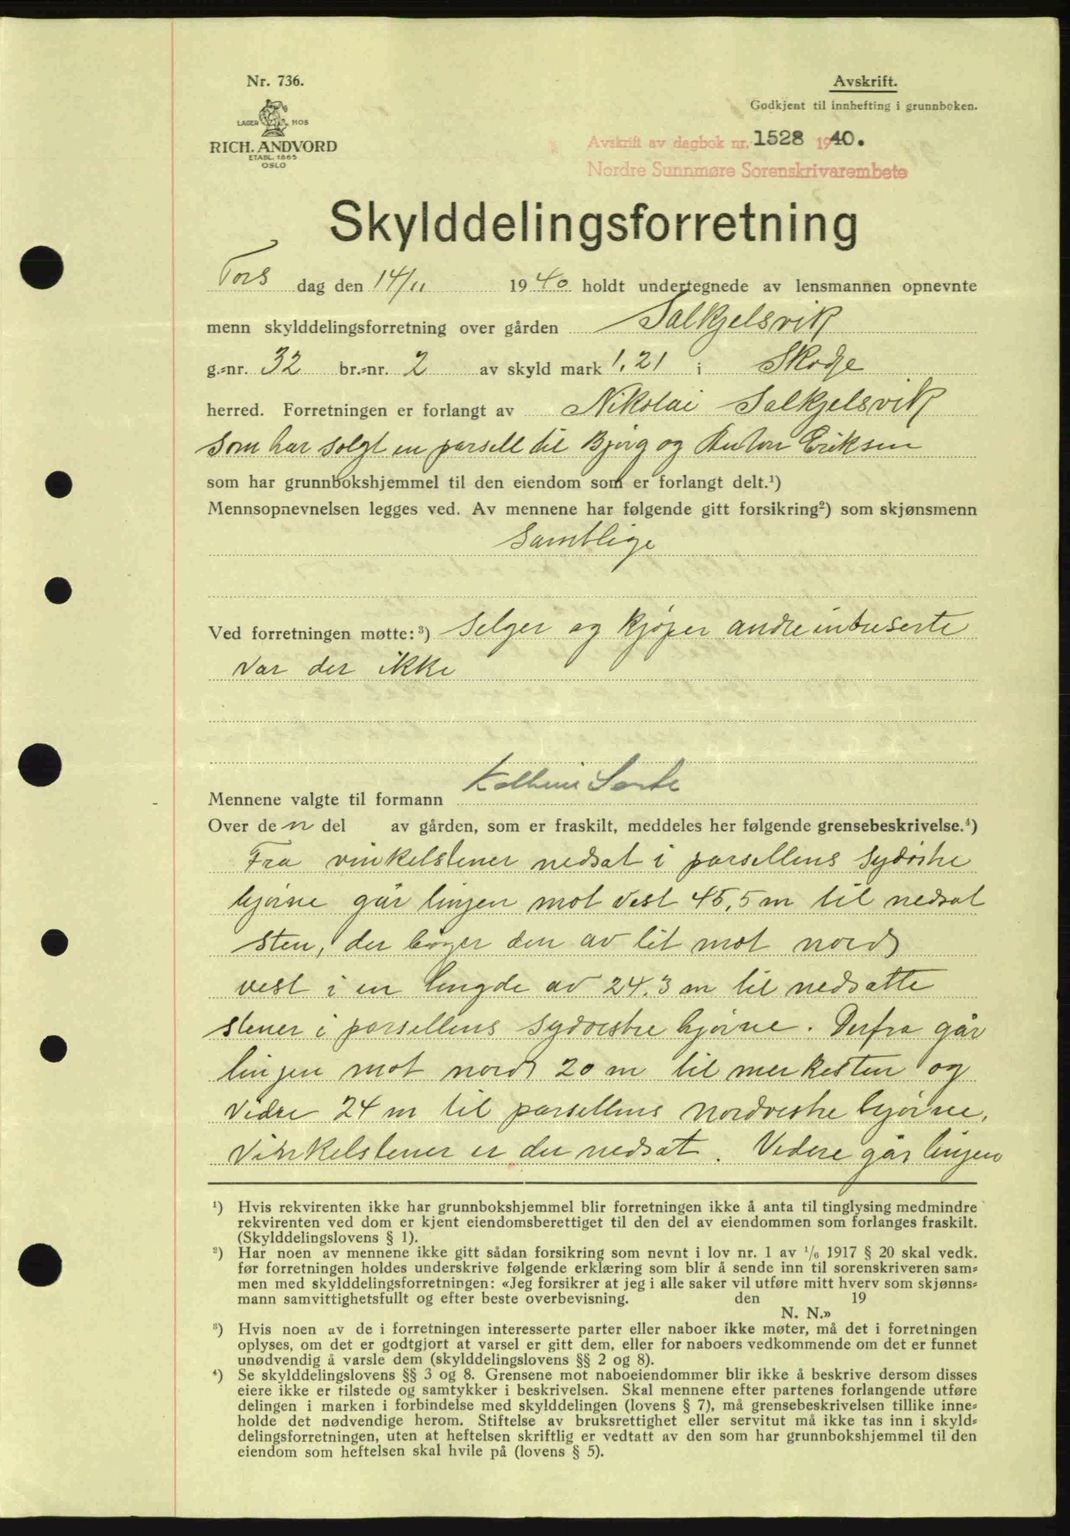 Nr. 736.
LAGER HOS
RICH. ANDVORD
ETABL. 1865
OSLO
Avskrift.
Godkjent til innhefting i grunnboken.
Avskrift av dagbok nr. 1528 1940.
Nordre Sunnmøre Sorenskrivarembete
Skylddelingsforretning
Tors dag den 14/11 1940 holdt undertegnede av lensmannen opnevnte
menn skylddelingsforretning over gården Salkjelsvik
g.=nr. 32 br.=nr. 2 av skyld mark 1,21 i Skodje
herred. Forretningen er forlangt av Nikolai Salkjelsvik
som har solgt en parsell til Bjørg og Anton Eriksen
som har grunnbokshjemmel til den eiendom som er forlangt delt.¹)
Mennsopnevnelsen legges ved. Av mennene har følgende gitt forsikring²) som skjønsmenn
Samtlige
Ved forretningen møtte:³) Selger og kjøper andre intreserte
var der ikke
Mennene valgte til formann
Over den del av gården, som er fraskilt, meddeles her følgende grensebeskrivelse.⁴)
Fra vinkelstener nedsat i parsellens sydøstre
hjørne går linjen mot vest 45,5 m til nedsat
sten, der bøger den av lit mot nord
vest i en lengde av 24.3 m til nedsatte
stener i parsellens sydvestre hjørne. Derfra går
linjen mot nord 20 m til merkesten og
videre 24 m til parsellens nordvestre hjørne,
Vinkelstener er der nedsat. Videre går linjen
¹) Hvis rekvirenten ikke har grunnbokshjemmel blir forretningen ikke å anta til tinglysing medmindre
rekvirenten ved dom er kjent eiendomsberettiget til den del av eiendommen som forlanges fraskilt.
(Skylddelingslovens § 1).
²) Har noen av mennene ikke gitt sådan forsikring som nevnt i lov nr. 1 av ¹/₆ 1917 § 20 skal vedk.
før forretningen holdes underskrive følgende erklæring som blir å sende inn til sorenskriveren sam=
men med skylddelingsforretningen: «Jeg forsikrer at jeg i alle saker vil utføre mitt hverv som skjønns=
mann samvittighetsfullt og efter beste overbevisning. den 19
N. N.»
³) Hvis noen av de i forretningen interesserte parter eller naboer ikke møter, må det i forretningen
oplyses, om det er godtgjort at varsel er gitt dem, eller for naboers vedkommende om det er funnet
unødvendig å varsle dem (skylddelingslovens §§ 2 og 8).
⁴) Se skylddelingslovens §§ 3 og 8. Grensene mot naboeiendommer blir ikke å beskrive dersom disses
eiere ikke er tilstede og samtykker i beskrivelsen. Skal mennene efter partenes forlangende utføre
delingen i marken i forbindelse med skylddelingen (lovens § 7), må grensebeskrivelsen tillike inne=
holde det nødvendige herom. Stiftelse av bruksrettighet eller servitut må ikke tas inn i skyld=
delingsforretningen, uten at heftelsen skriftlig er vedtatt av den som har grunnbokshjemmel til den
eiendom som heftelsen skal hvile på (lovens § 5).